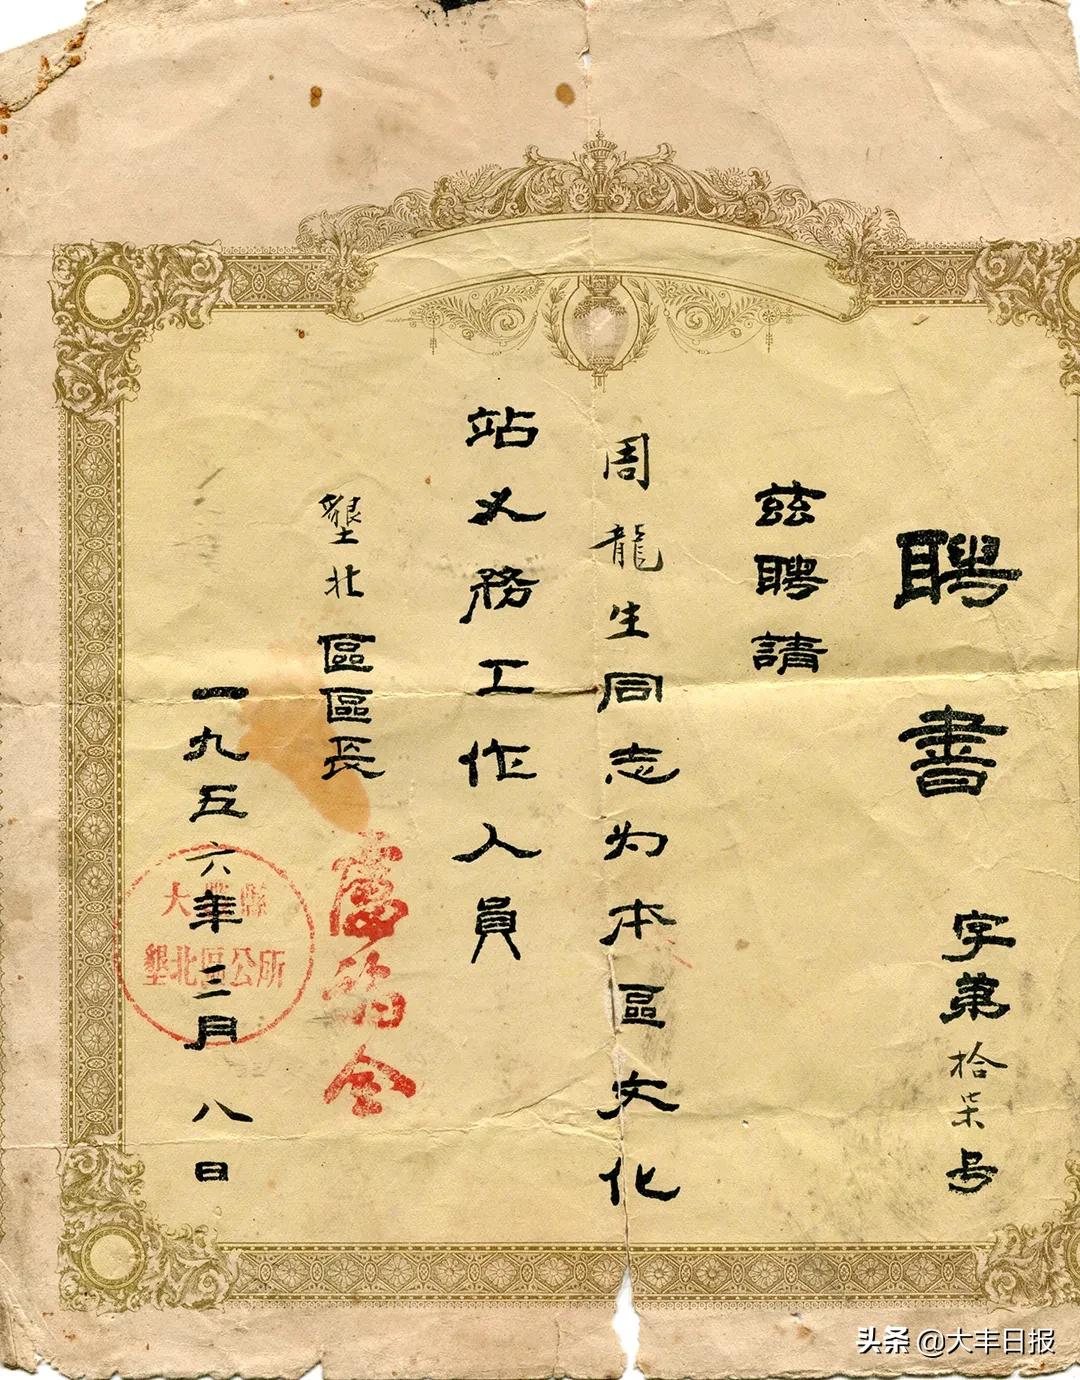 聘書
字第拾柒号
兹聘請
周龍生同志为本區文化
站义務工作人員
墾北區區長
盧 全
一九五六年三月八日
大豐縣
墾北區公所
头条 @大丰日报